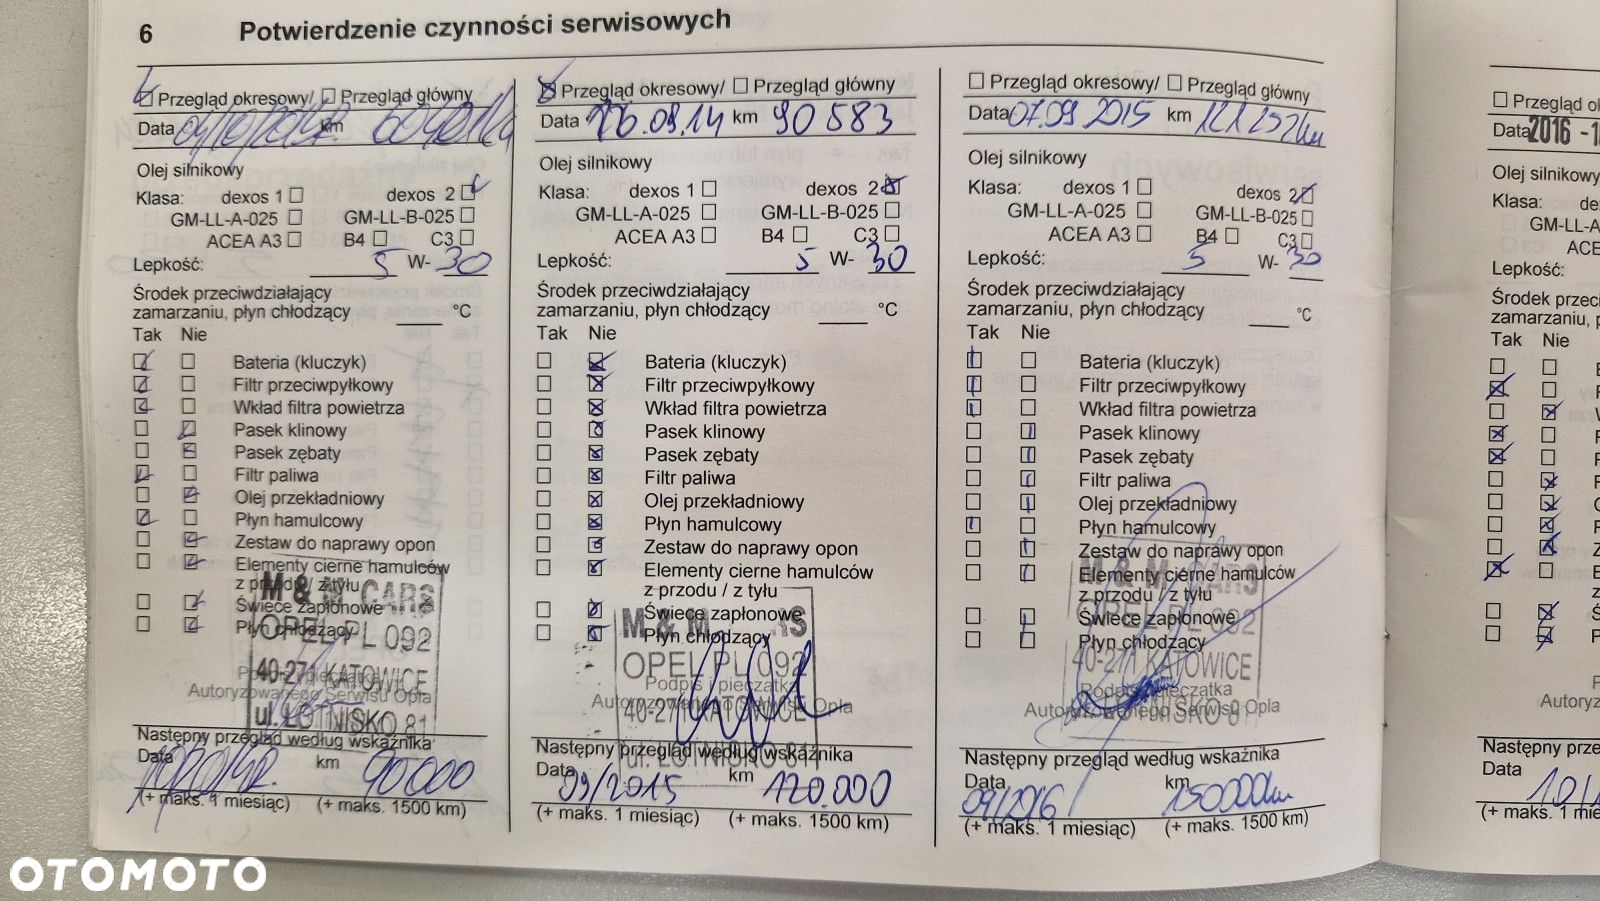 6 Potwierdzenie czynności serwisowych
Przegląd okresowy/ Przegląd główny
Data km
Olej silnikowy
Klasa: dexos 1 dexos 2
GM-LL-A-025 GM-LL-B-025
ACEA A3 B4 C3
Lepkość: 5 W- 30
Środek przeciwdziałający
zamarzaniu, płyn chłodzący °C
Tak Nie
Bateria (kluczyk)
Filtr przeciwpyłkowy
Wkład filtra powietrza
Pasek klinowy
Pasek zębaty
Filtr paliwa
Olej przekładniowy
Płyn hamulcowy
Zestaw do naprawy opon
Elementy cierne hamulców
z przodu / z tyłu
Świece zapłonowe
Płyn chłodzący
M & M CARS
OPEL PL 092
40-271 KATOWICE
ul. LOTNISKO 81
Podpis i pieczątka
Autoryzowanego Serwisu Opla
Następny przegląd według wskaźnika
Data km 90000
(+ maks. 1 miesiąc) (+ maks. 1500 km)
Przegląd okresowy/ Przegląd główny
Data 26.09.14 km 90 583
Olej silnikowy
Klasa: dexos 1 dexos 2
GM-LL-A-025 GM-LL-B-025
ACEA A3 B4 C3
Lepkość: 5 W- 30
Środek przeciwdziałający
zamarzaniu, płyn chłodzący °C
Tak Nie
Bateria (kluczyk)
Filtr przeciwpyłkowy
Wkład filtra powietrza
Pasek klinowy
Pasek zębaty
Filtr paliwa
Olej przekładniowy
Płyn hamulcowy
Zestaw do naprawy opon
Elementy cierne hamulców
z przodu / z tyłu
Świece zapłonowe
Płyn chłodzący
M & M CARS
OPEL PL 092
40-271 KATOWICE
ul. LOTNISKO 81
Podpis i pieczątka
Autoryzowanego Serwisu Opla
Następny przegląd według wskaźnika
Data 09/2015 km 120.000
(+ maks. 1 miesiąc) (+ maks. 1500 km)
Przegląd okresowy/ Przegląd główny
Data 07.09 2015 km 121252km
Olej silnikowy
Klasa: dexos 1 dexos 2
GM-LL-A-025 GM-LL-B-025
ACEA A3 B4 C3
Lepkość: 5 W- 30
Środek przeciwdziałający
zamarzaniu, płyn chłodzący °C
Tak Nie
Bateria (kluczyk)
Filtr przeciwpyłkowy
Wkład filtra powietrza
Pasek klinowy
Pasek zębaty
Filtr paliwa
Olej przekładniowy
Płyn hamulcowy
Zestaw do naprawy opon
Elementy cierne hamulców
z przodu / z tyłu
Świece zapłonowe
Płyn chłodzący
M & M CARS
OPEL PL 092
40-271 KATOWICE
LOTNISKO 81
Podpis i pieczątka
Autoryzowanego Serwisu Opla
Następny przegląd według wskaźnika
Data 09/2016 km 150000km
(+ maks. 1 miesiąc) (+ maks. 1500 km)
Przegląd
Data 2016 -1
Olej silnikowy
Klasa:
GM-LL-A
ACEA
Lepkość:
Środek przeci
zamarzaniu, p
Tak Nie
Autoryz
Następny prze
Data 10/
(+ maks. 1 mie
OTOMOTO